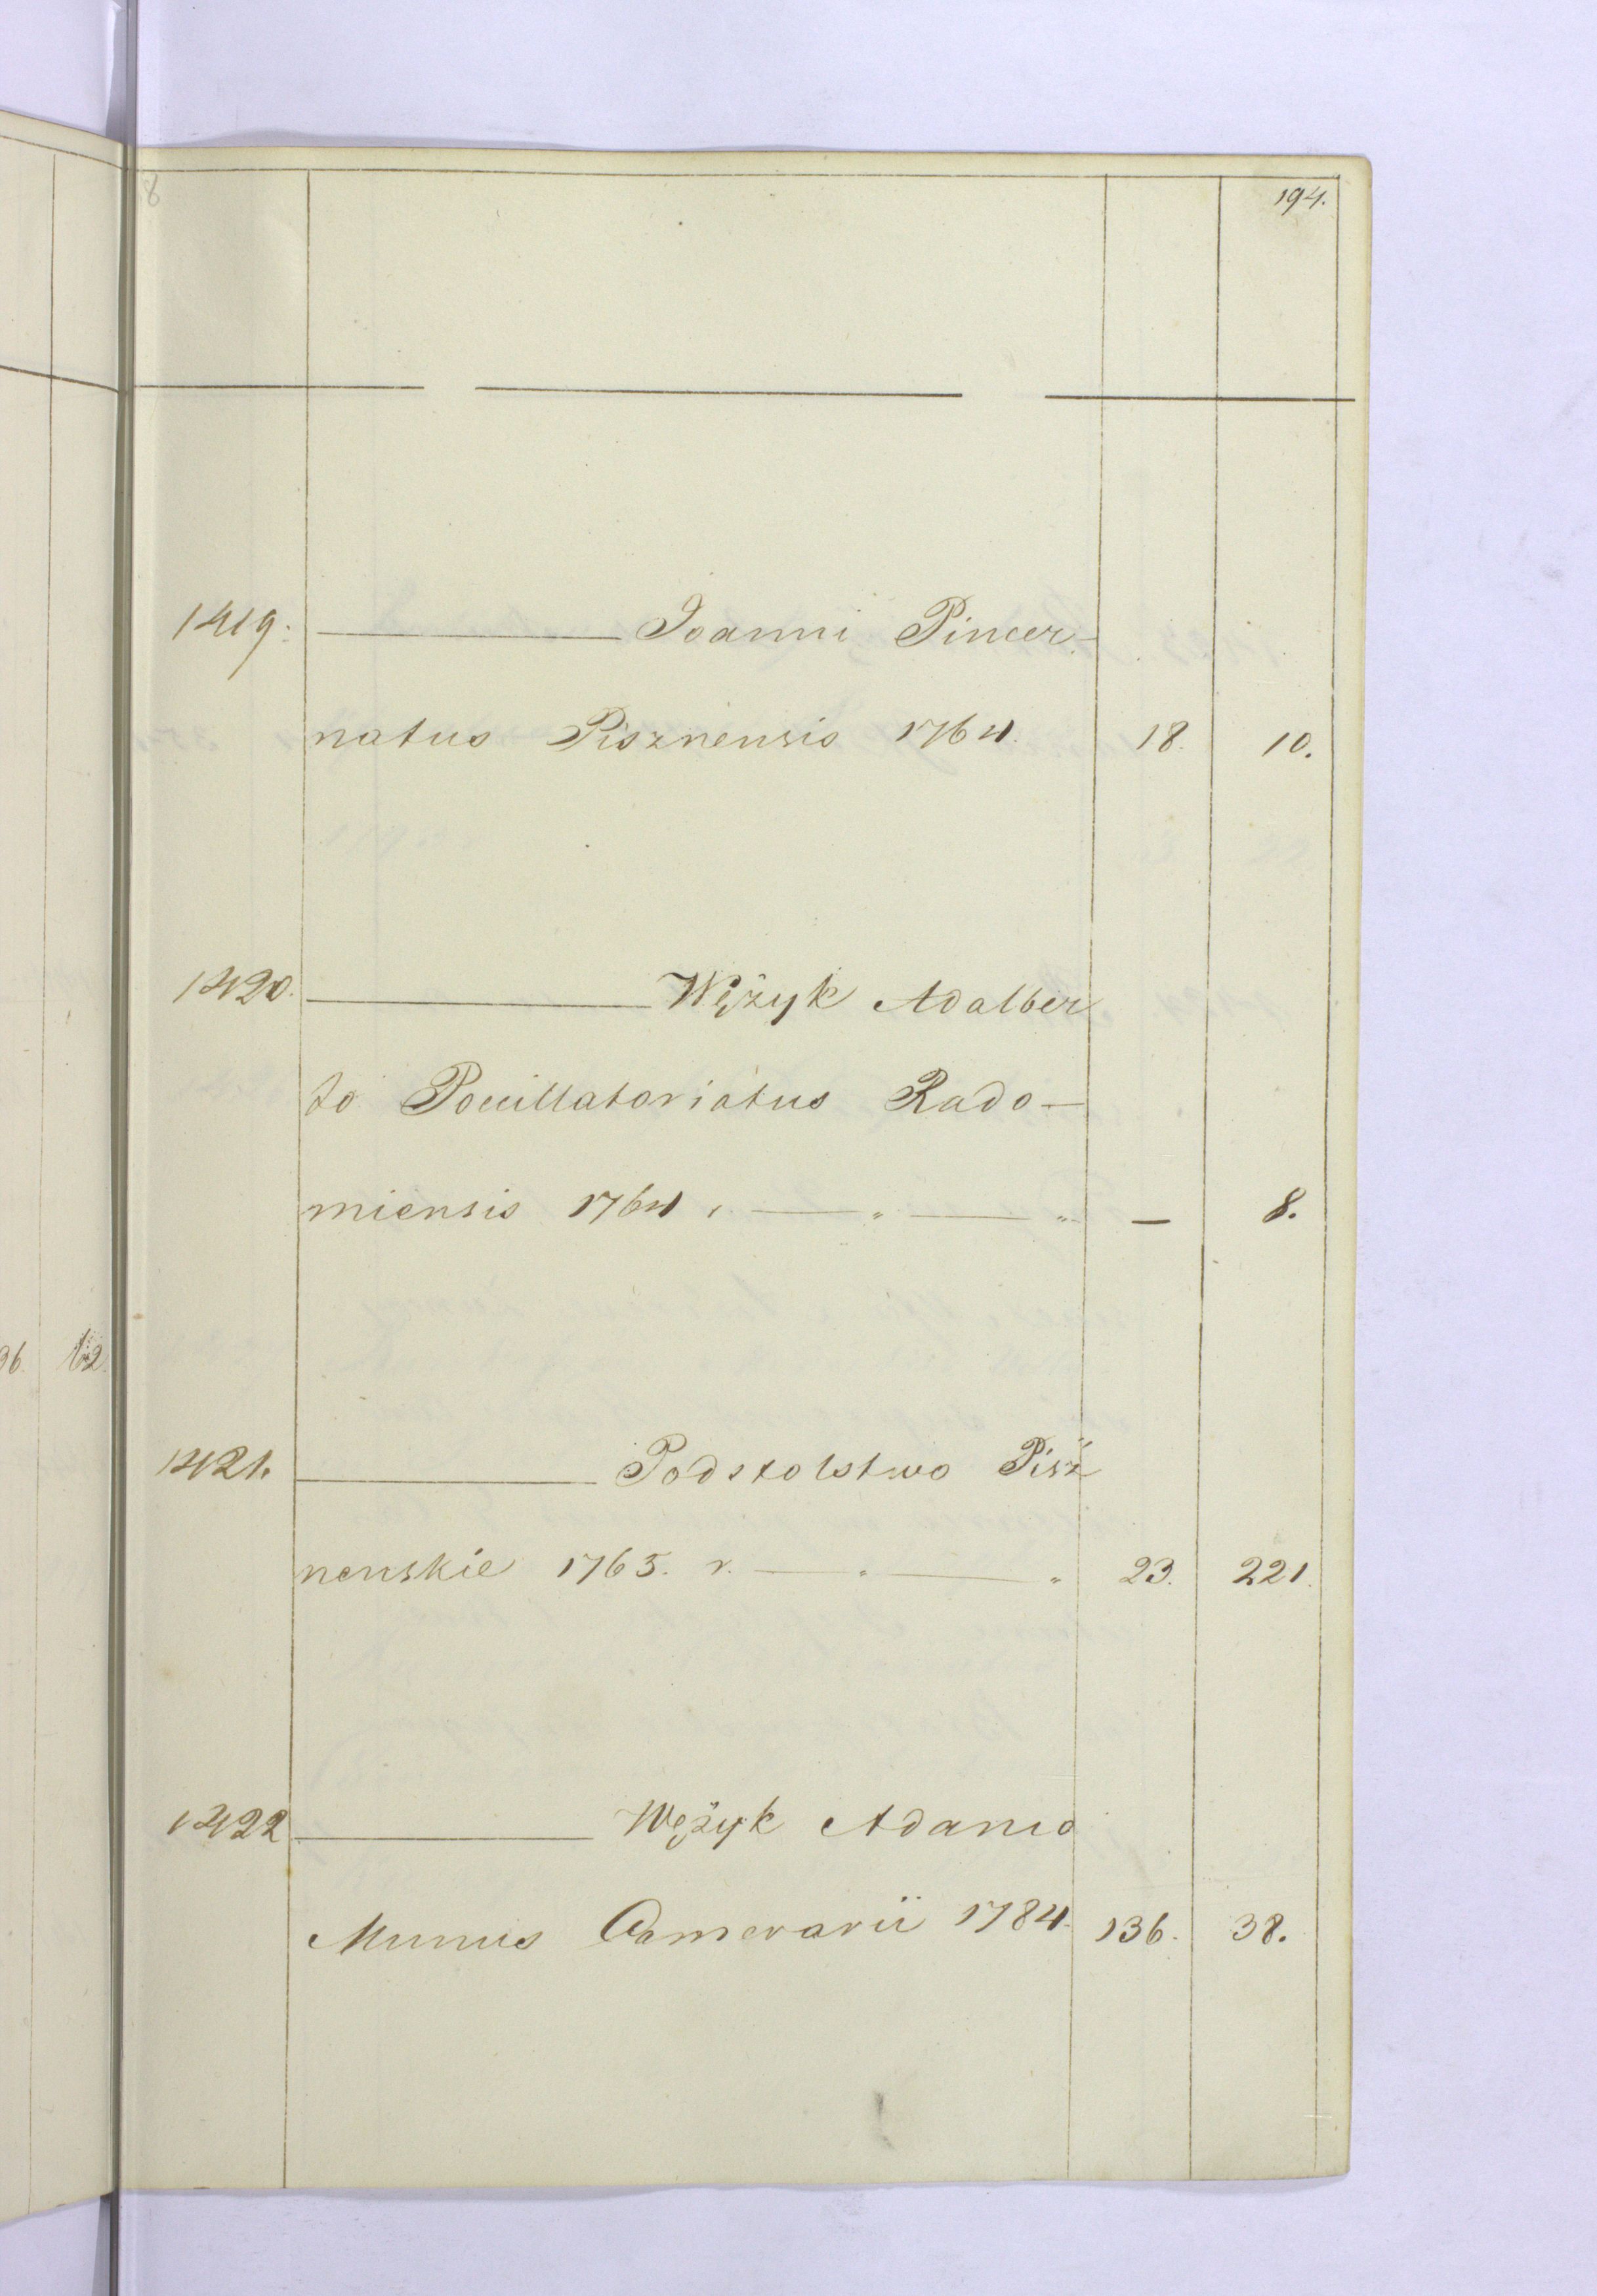 8
194.
1419. ——— Joanni Pincer-
natus Pisznensis 1764. 18. 10.
1420. ——— Wężyk Adalber
to Pocillatoriatus Rado-
miensis 1764 r. — " — " — 8.
96. 62.
1421. ——— Podstolstwo Pisz
nenskie 1765. r. — " — " 23. 221.
1422 ——— Wężyk Adamo
Munus Camerarii 1784. 136. 38.